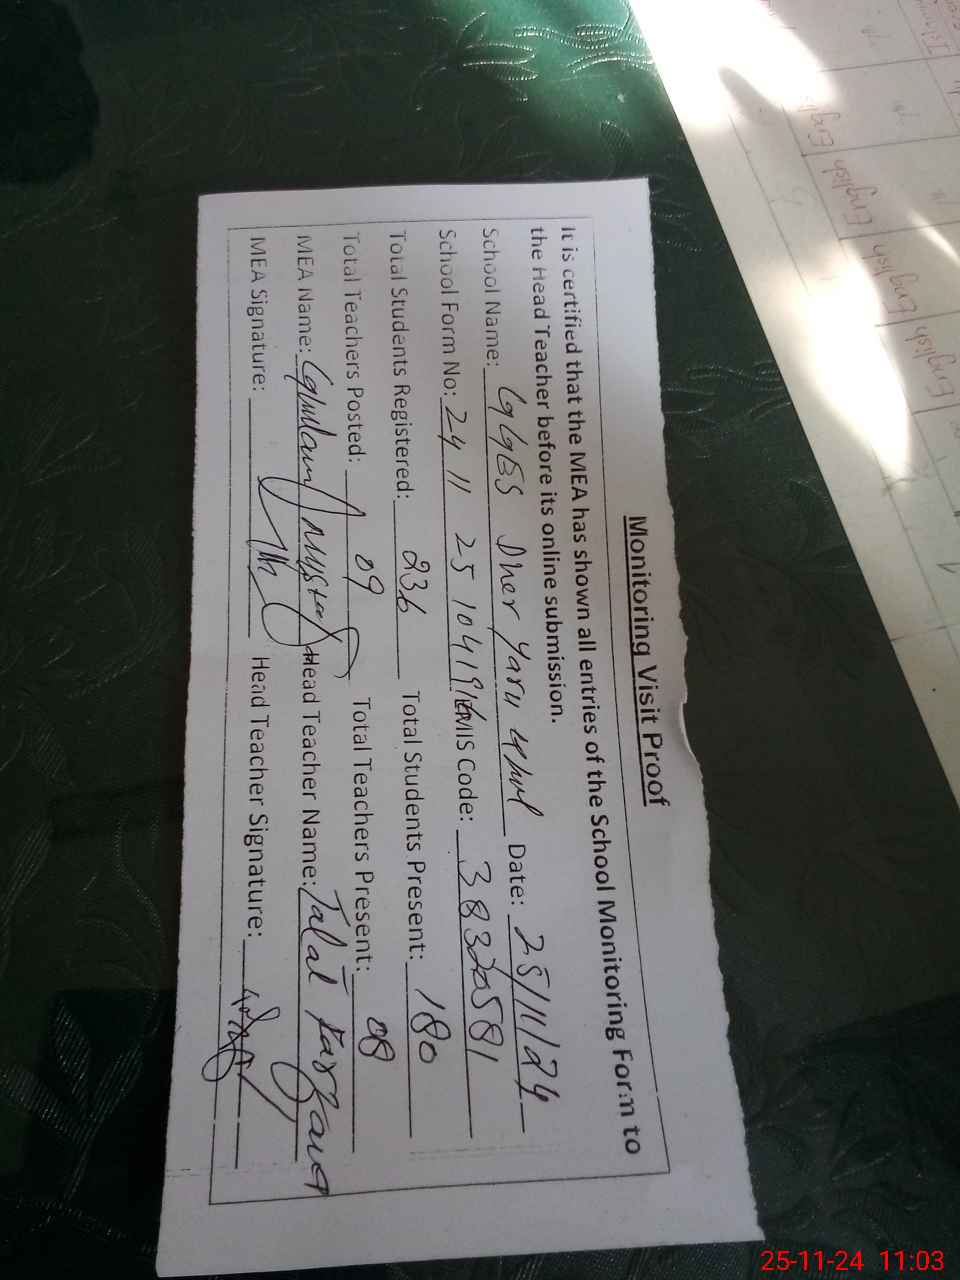 Monitoring Visit Proof
It is certified that the MEA has shown all entries of the School Monitoring Form to
the Head Teacher before its online submission.
School Name: GGES Dher Yaru Date: 25/11/24
School Form No: 24 11 25 10419 EMIS Code: 38320581
Total Students Registered: 236 Total Students Present: 180
Total Teachers Posted: 09 Total Teachers Present: 08
MEA Name: Ghulam Mustafa Head Teacher Name: Talat
MEA Signature: Head Teacher Signature:
English
English
English
English
25-11-24 11:03